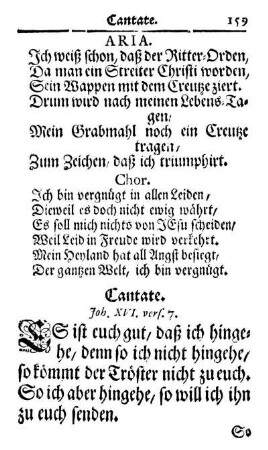 Cantate. 159
ARIA.
Ich weiß schon, daß der Ritter-Orden,
Da man ein Streiter Christi worden,
Sein Wappen mit dem Creutze ziert.
Drum wird nach meinen Lebens-Ta-
gen/
Mein Grabmahl noch ein Creutze
tragen/
Zum Zeichen/ daß ich triumphirt.
Chor.
Ich bin vergnügt in allen Leiden/
Dieweil es doch nicht ewig währt/
Es soll mich nichts von JEsu scheiden/
Weil Leid in Freude wird verkehrt.
Mein Heyland hat all Angst besiegt/
Der gantzen Welt, ich bin vergnügt.
Cantate.
Joh. XVI. vers. 7.
ES ist euch gut, daß ich hinge-
he, denn so ich nicht hingehe,
so kömmt der Tröster nicht zu euch.
So ich aber hingehe, so will ich ihn
zu euch senden.
So